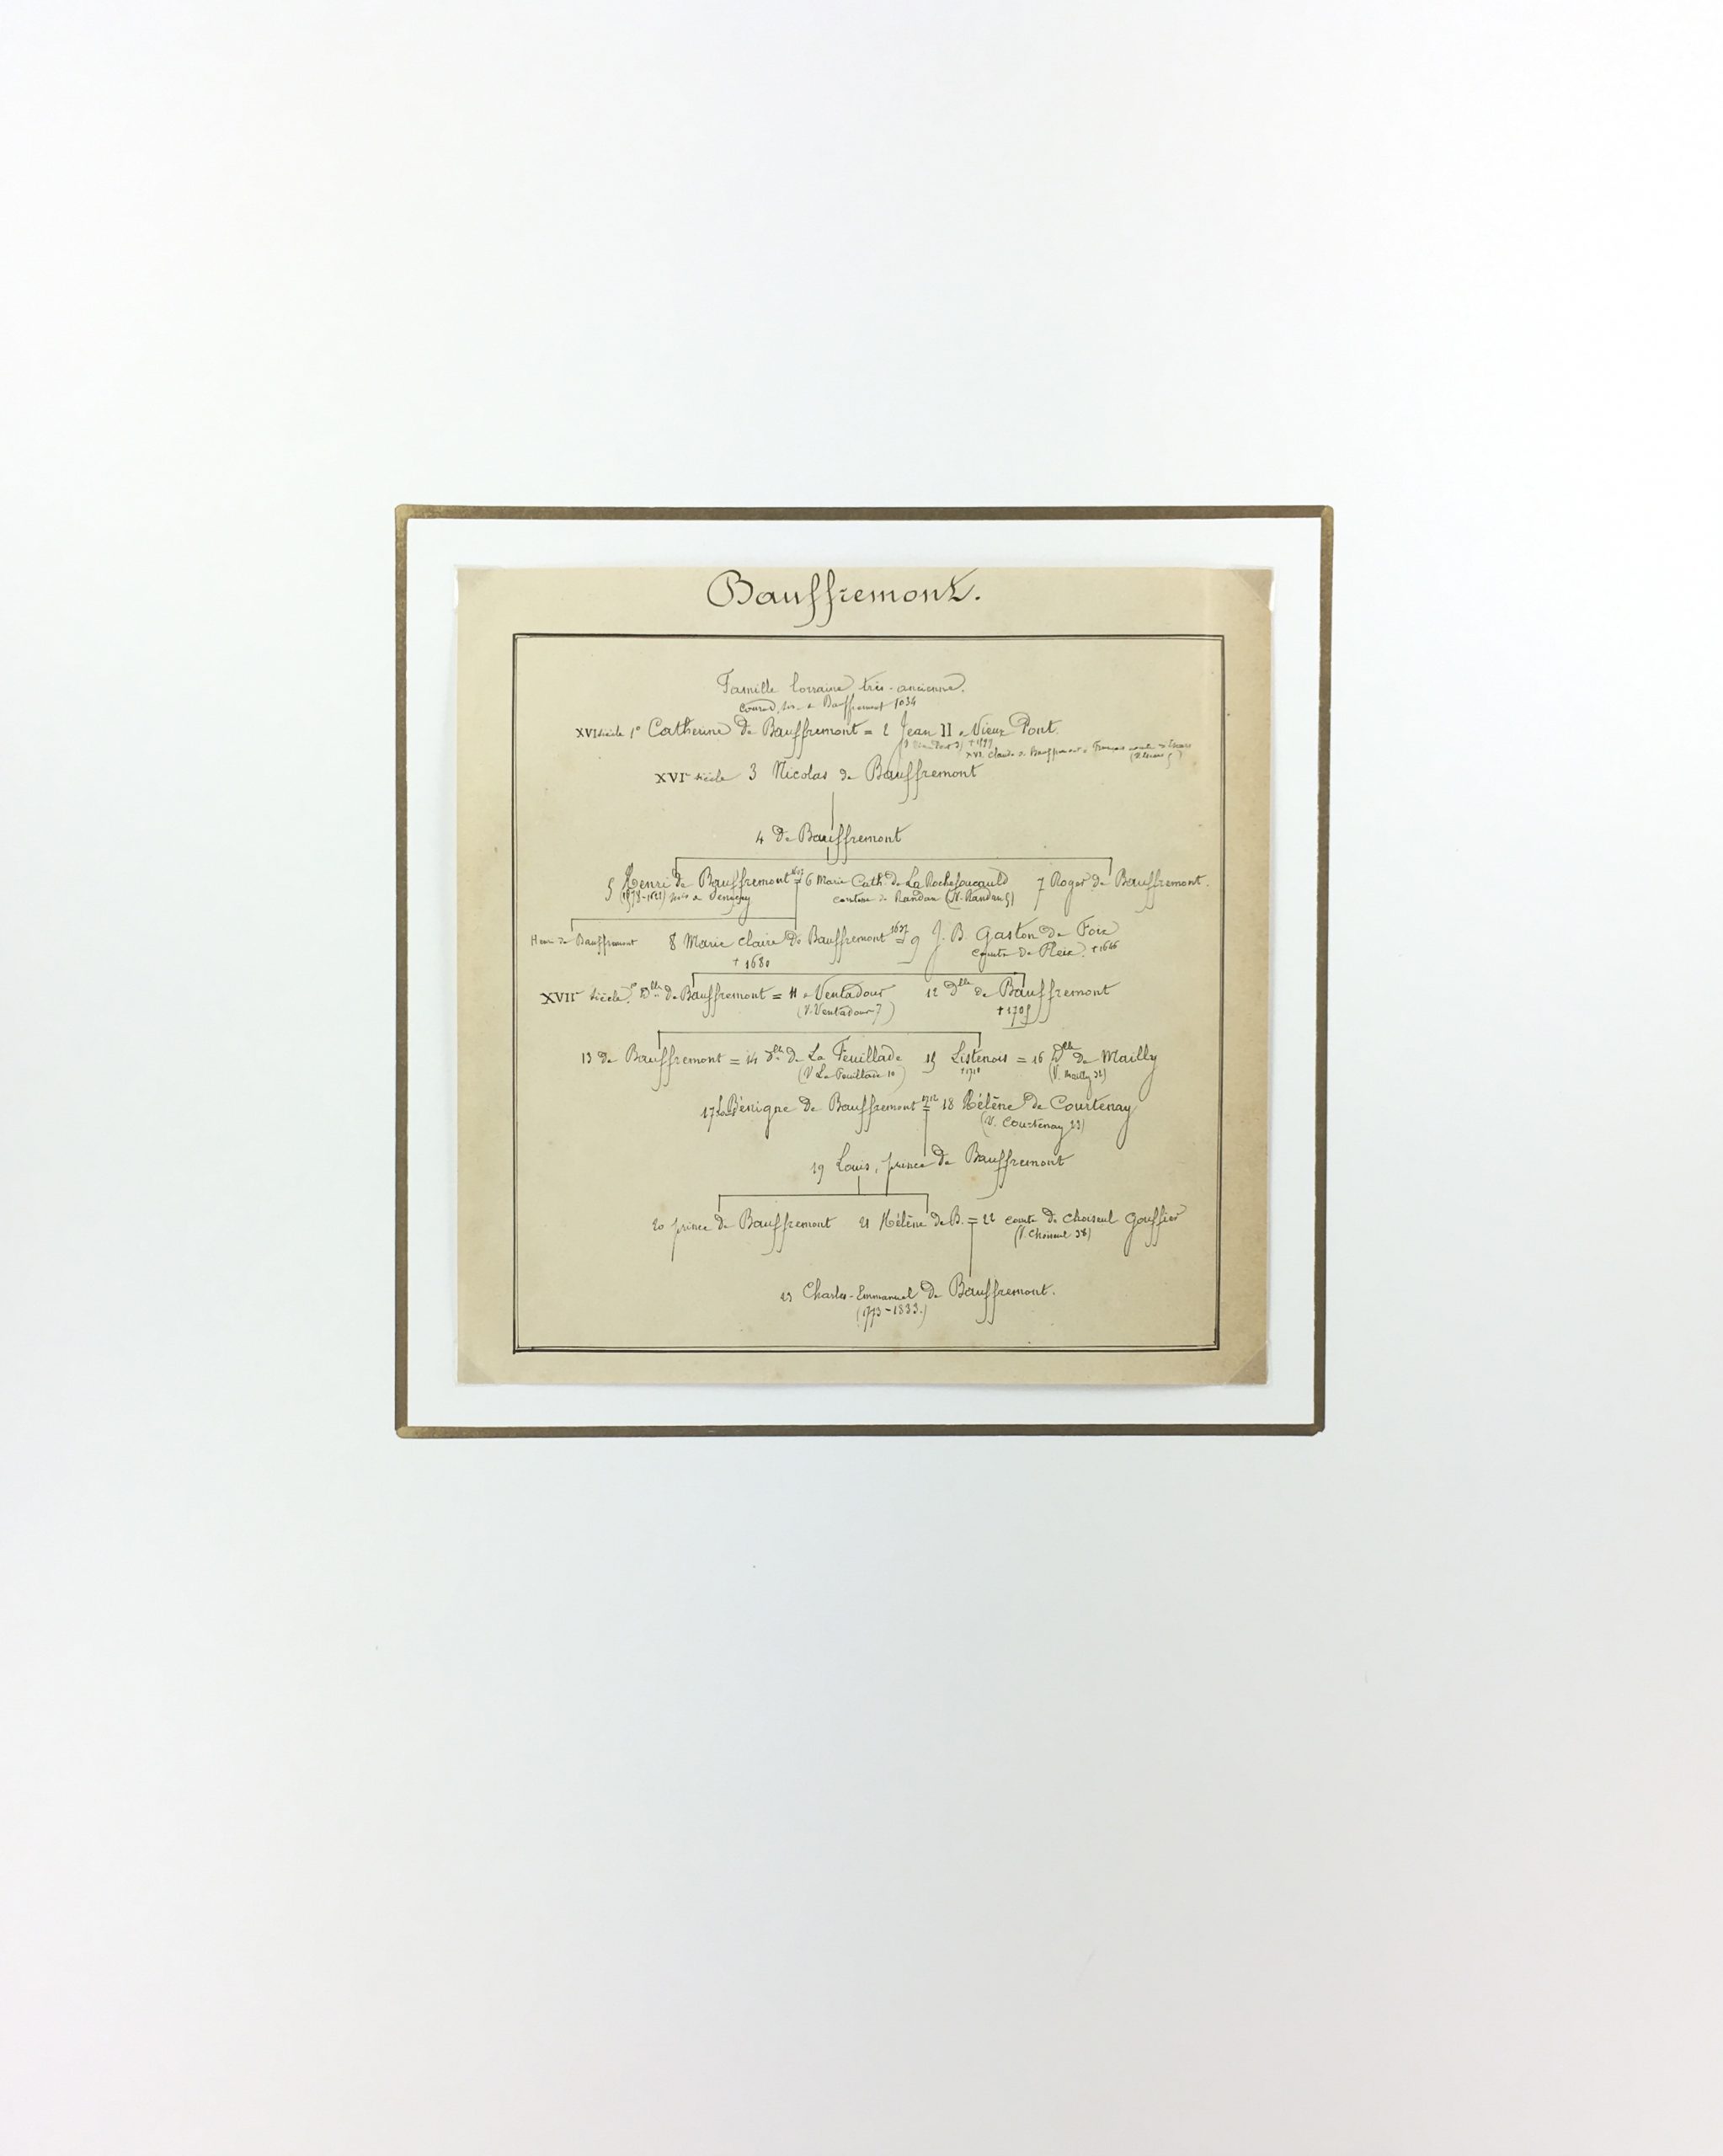 Bauffremont.
Famille lorraine très-ancienne.
de Bauffremont 1034
XVI siècle 1° Catherine de Bauffremont = 2 Jean II de Vieux Pont.
XVI. Claude de Bauffremont = François comte
XVIe siècle 3 Nicolas de Bauffremont
4 de Bauffremont
5 Henri de Bauffremont = 6 Marie Cath. de La Rochefoucauld 7 Roger de Bauffremont.
(1578-1621) comtesse de Randan (V. Randan 5)
Henri de Bauffremont 8 Marie Claire de Bauffremont 1637 = 9 J. B. Gaston de Foix
† 1680 comte de Fleix. † 1646
XVIIe siècle Dlle de Bauffremont = 11 de Ventadour 12 Dlle de Bauffremont
(V. Ventadour 7) † 1705
13 de Bauffremont = 14 Dlle de La Feuillade 15 Listenois = 16 Dlle de Mailly
(V. La Feuillade 10) † 1710 (V. Mailly 32)
17 Louis Bénigne de Bauffremont 1712 = 18 Hélène de Courtenay
(V. Courtenay 23)
19 Louis, prince de Bauffremont
20 prince de Bauffremont 21 Hélène de B. = 22 comte de Choiseul Gouffier
(V. Choiseul 38)
23 Charles-Emmanuel de Bauffremont.
(1773-1833.)